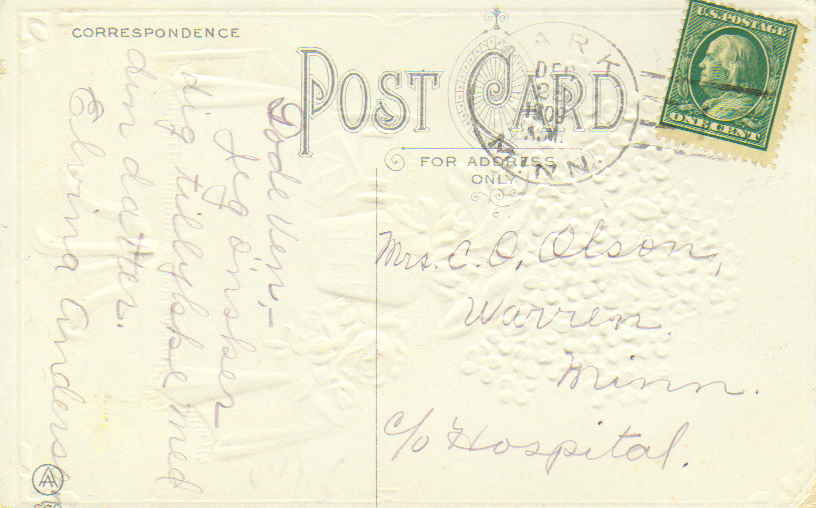 CORRESPONDENCE
POST CARD
FOR ADDRESS
ONLY
U.S. POSTAGE
ONE CENT
ARK
DEC
2
1909
A.M.
MINN.
Gode Ven,-
Jeg önsker
dig tillykke med
din datter.
Elvina Anderson
Mrs. C. O. Olson,
Warren
Minn.
c/o Hospital.
AA